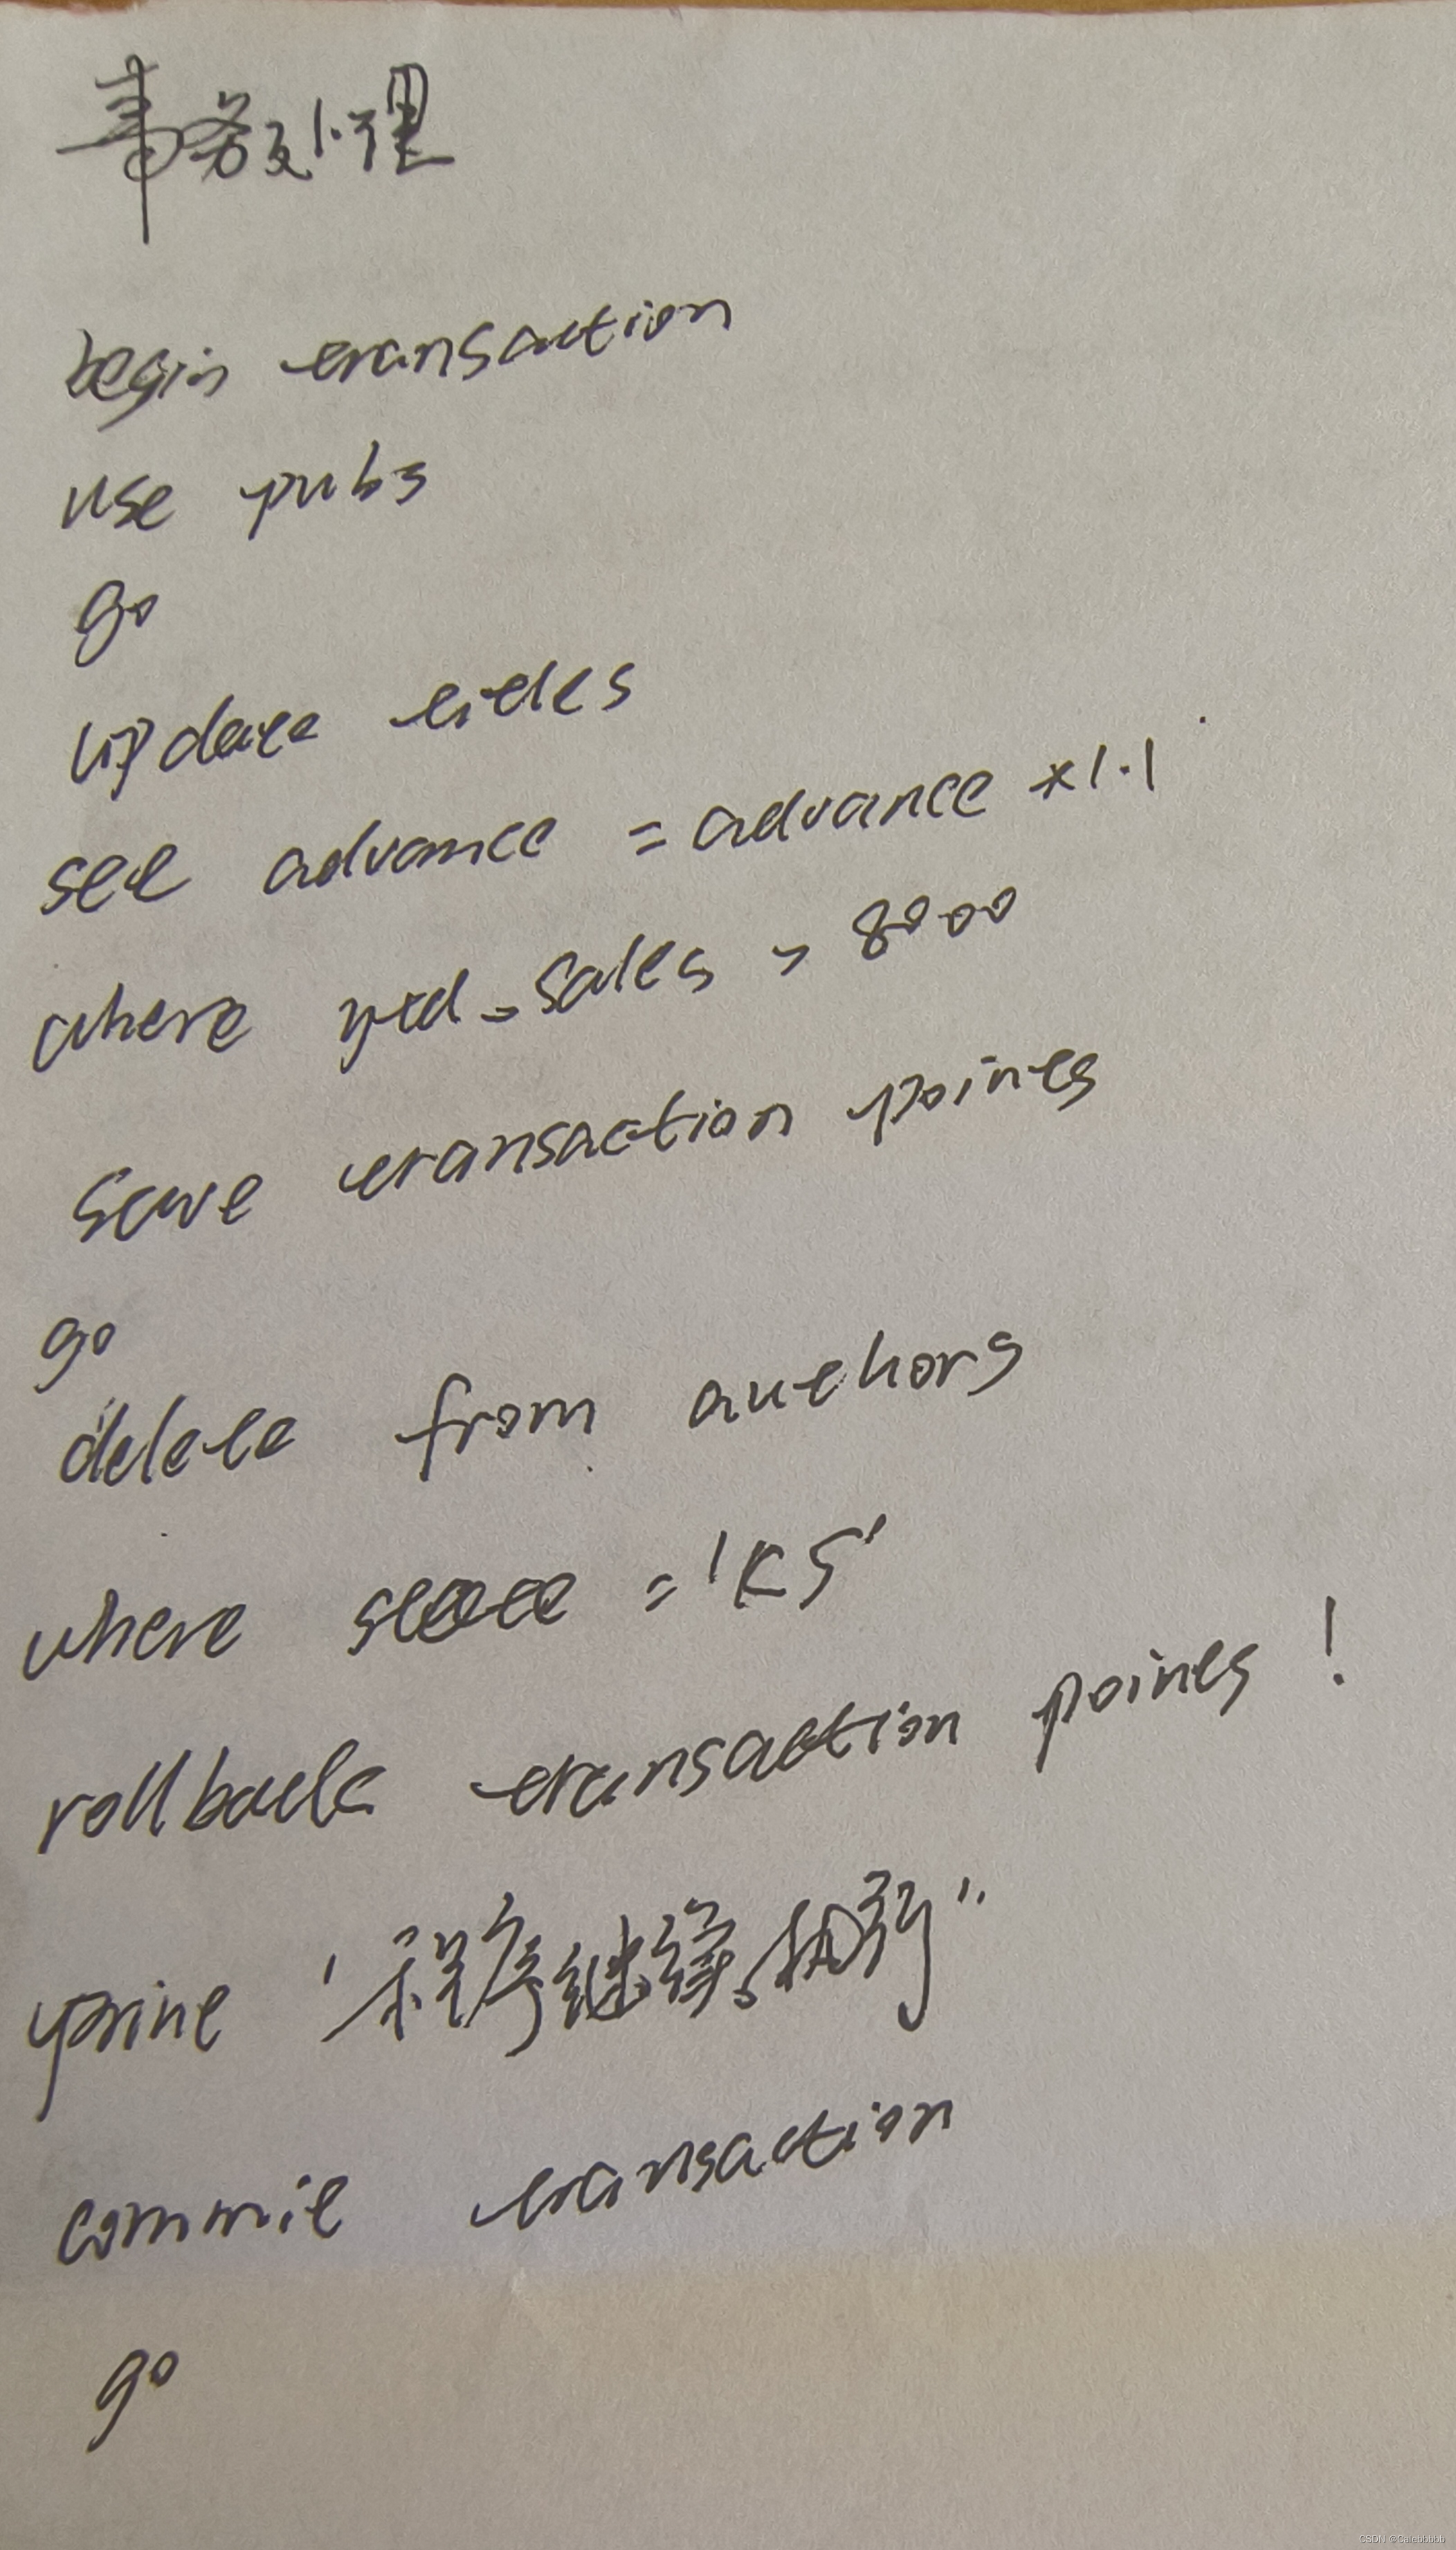 事务处理
begin transaction
use pubs
go
update titles
set advance = advance *1.1
where ytd_sales > 8000
save transaction points
go
delete from authors
where state = 'KS'
rollback transaction points !
print '程序继续执行"
commit transaction
go
CSDN @Calebbbbb